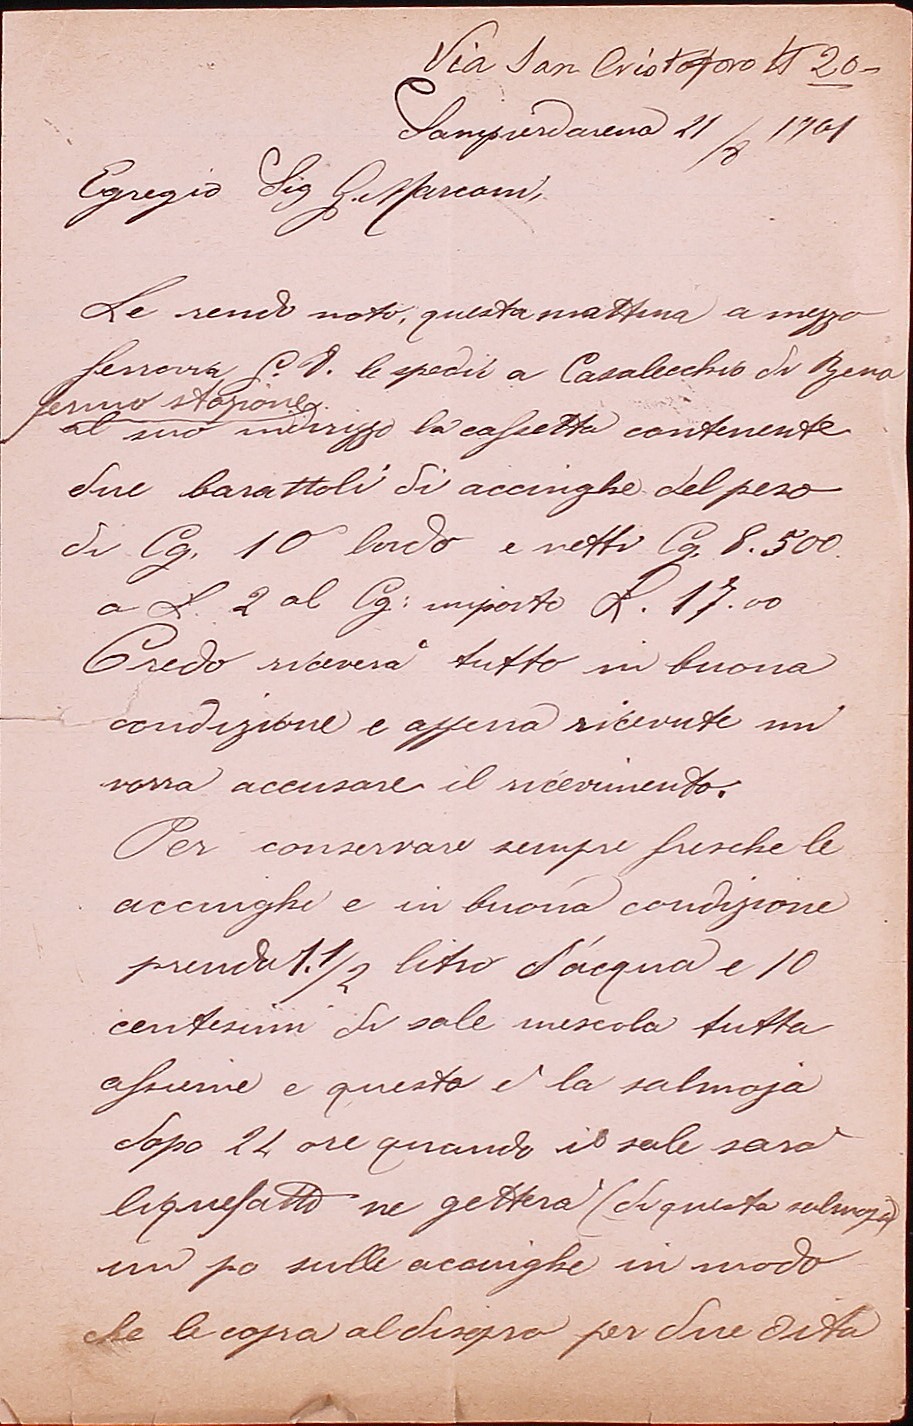 Via San Cristoforo N 20-
Sampierdarena 21/8 1901
Egregio Sig G. Marconi,
Le rendo noto, questa mattina a mezzo
ferrovia G. V. le spedii a Casalecchio di Reno
fermo stazione
al suo indirizzo la cassetta contenente
due barattoli di acciughe del peso
di Cg. 10 lordo e netti Cg. 8.500
a L. 2 al Cg: importo L. 17.00
Credo riceverà tutto in buona
condizione e appena ricevute mi
vorra accusare il ricevimento.
Per conservare sempre fresche le
acciughe e in buona condizione
prenda 1.1/2 litro d'acqua e 10
centesimi di sale mescola tutta
assieme e questo e' la salmoja
dopo 24 ore quando il sale sarà
liquefatto ne getterà (di questa salmoja)
un po sulle acciughe in modo
che le copra al disopra per due dita